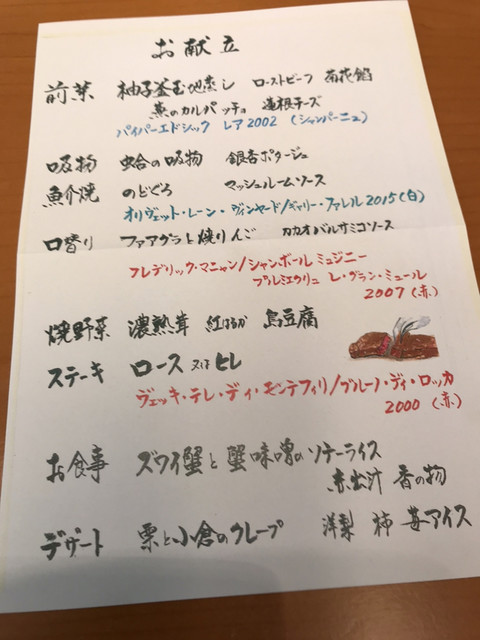 お献立
前菜 柚子釜玉地蒸し ローストビーフ 菊花餡
蕪のカルパッチョ 蓮根チーズ
パイパーエドシック レア2002 (シャンパーニュ)
吸物 蛤の吸物 銀杏ポタージュ
魚介焼 のどぐろ マッシュルームソース
オリヴェット・レーン・ヴィンヤード/ギャリー・ファレル2015(白)
口替り フォアグラと焼りんご カカオバルサミコソース
フレデリック・マニャン/シャンボールミュジニー
プルミエクリュ レ・グラン・ミュール
2007(赤)
焼野菜 濃熟茸 紅はるか 島豆腐
ステーキ ロース 又は ヒレ
ヴェッキ・テレ・ディ・モンテフィリ/ブルーノ・ディ・ロッカ
2000(赤)
お食事 ズワイ蟹と蟹味噌のソテーライス
赤出汁 香の物
デザート 栗と小倉のクレープ 洋梨 柿 苺アイス